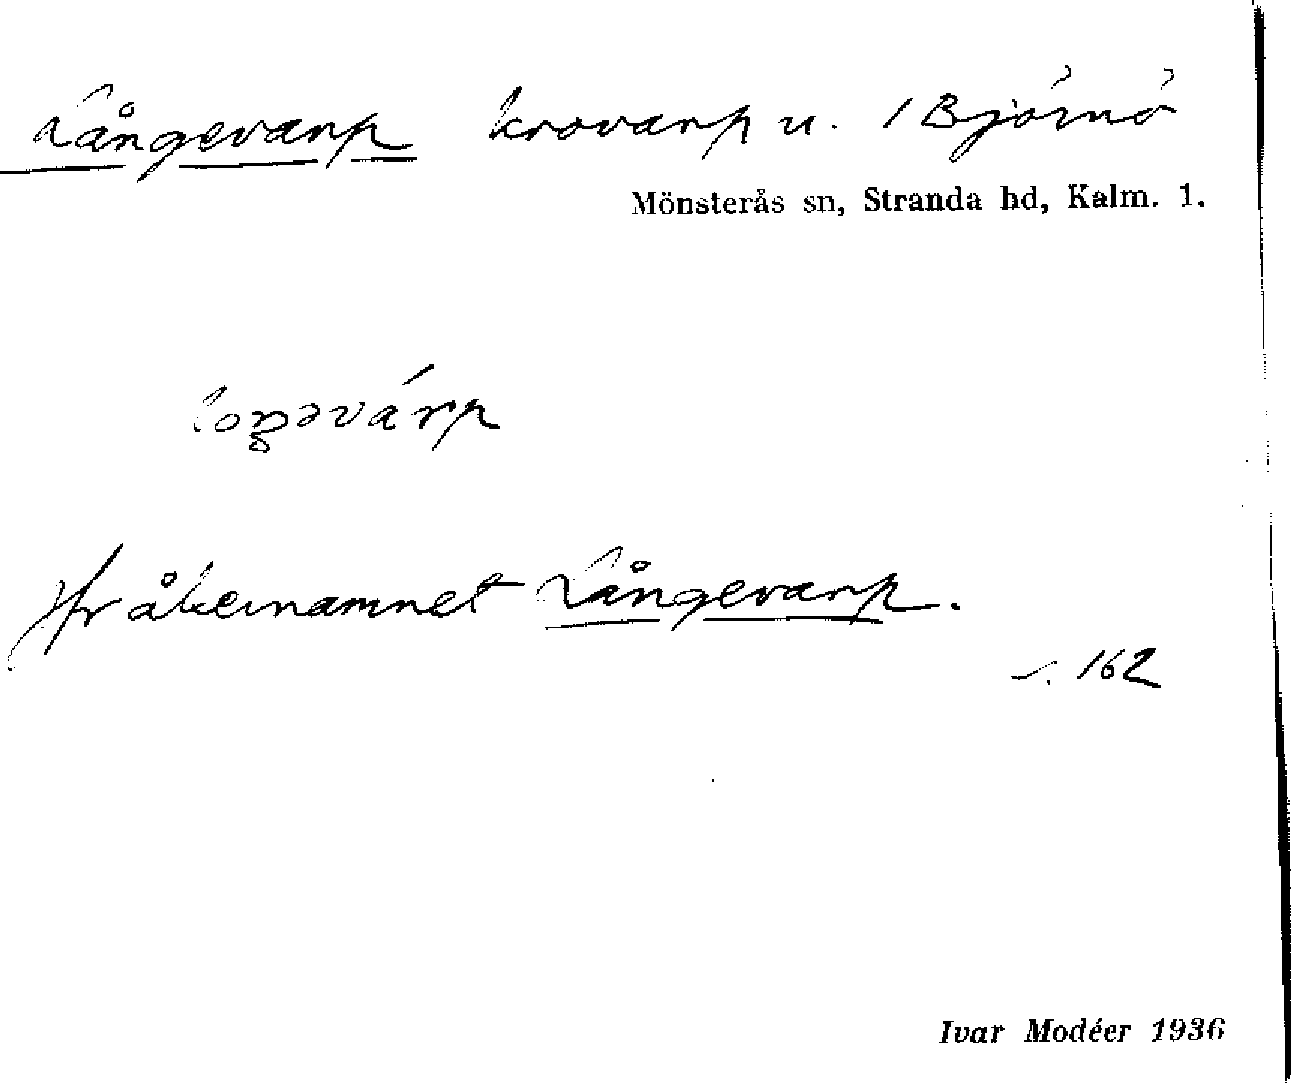 Långevarp krovarp u. 1 Björnö
Mönsterås sn, Stranda hd, Kalm. l.
loŋəvárp
Jfr åkernamnet Långevarp.
s. 162
Ivar Modéer 1936